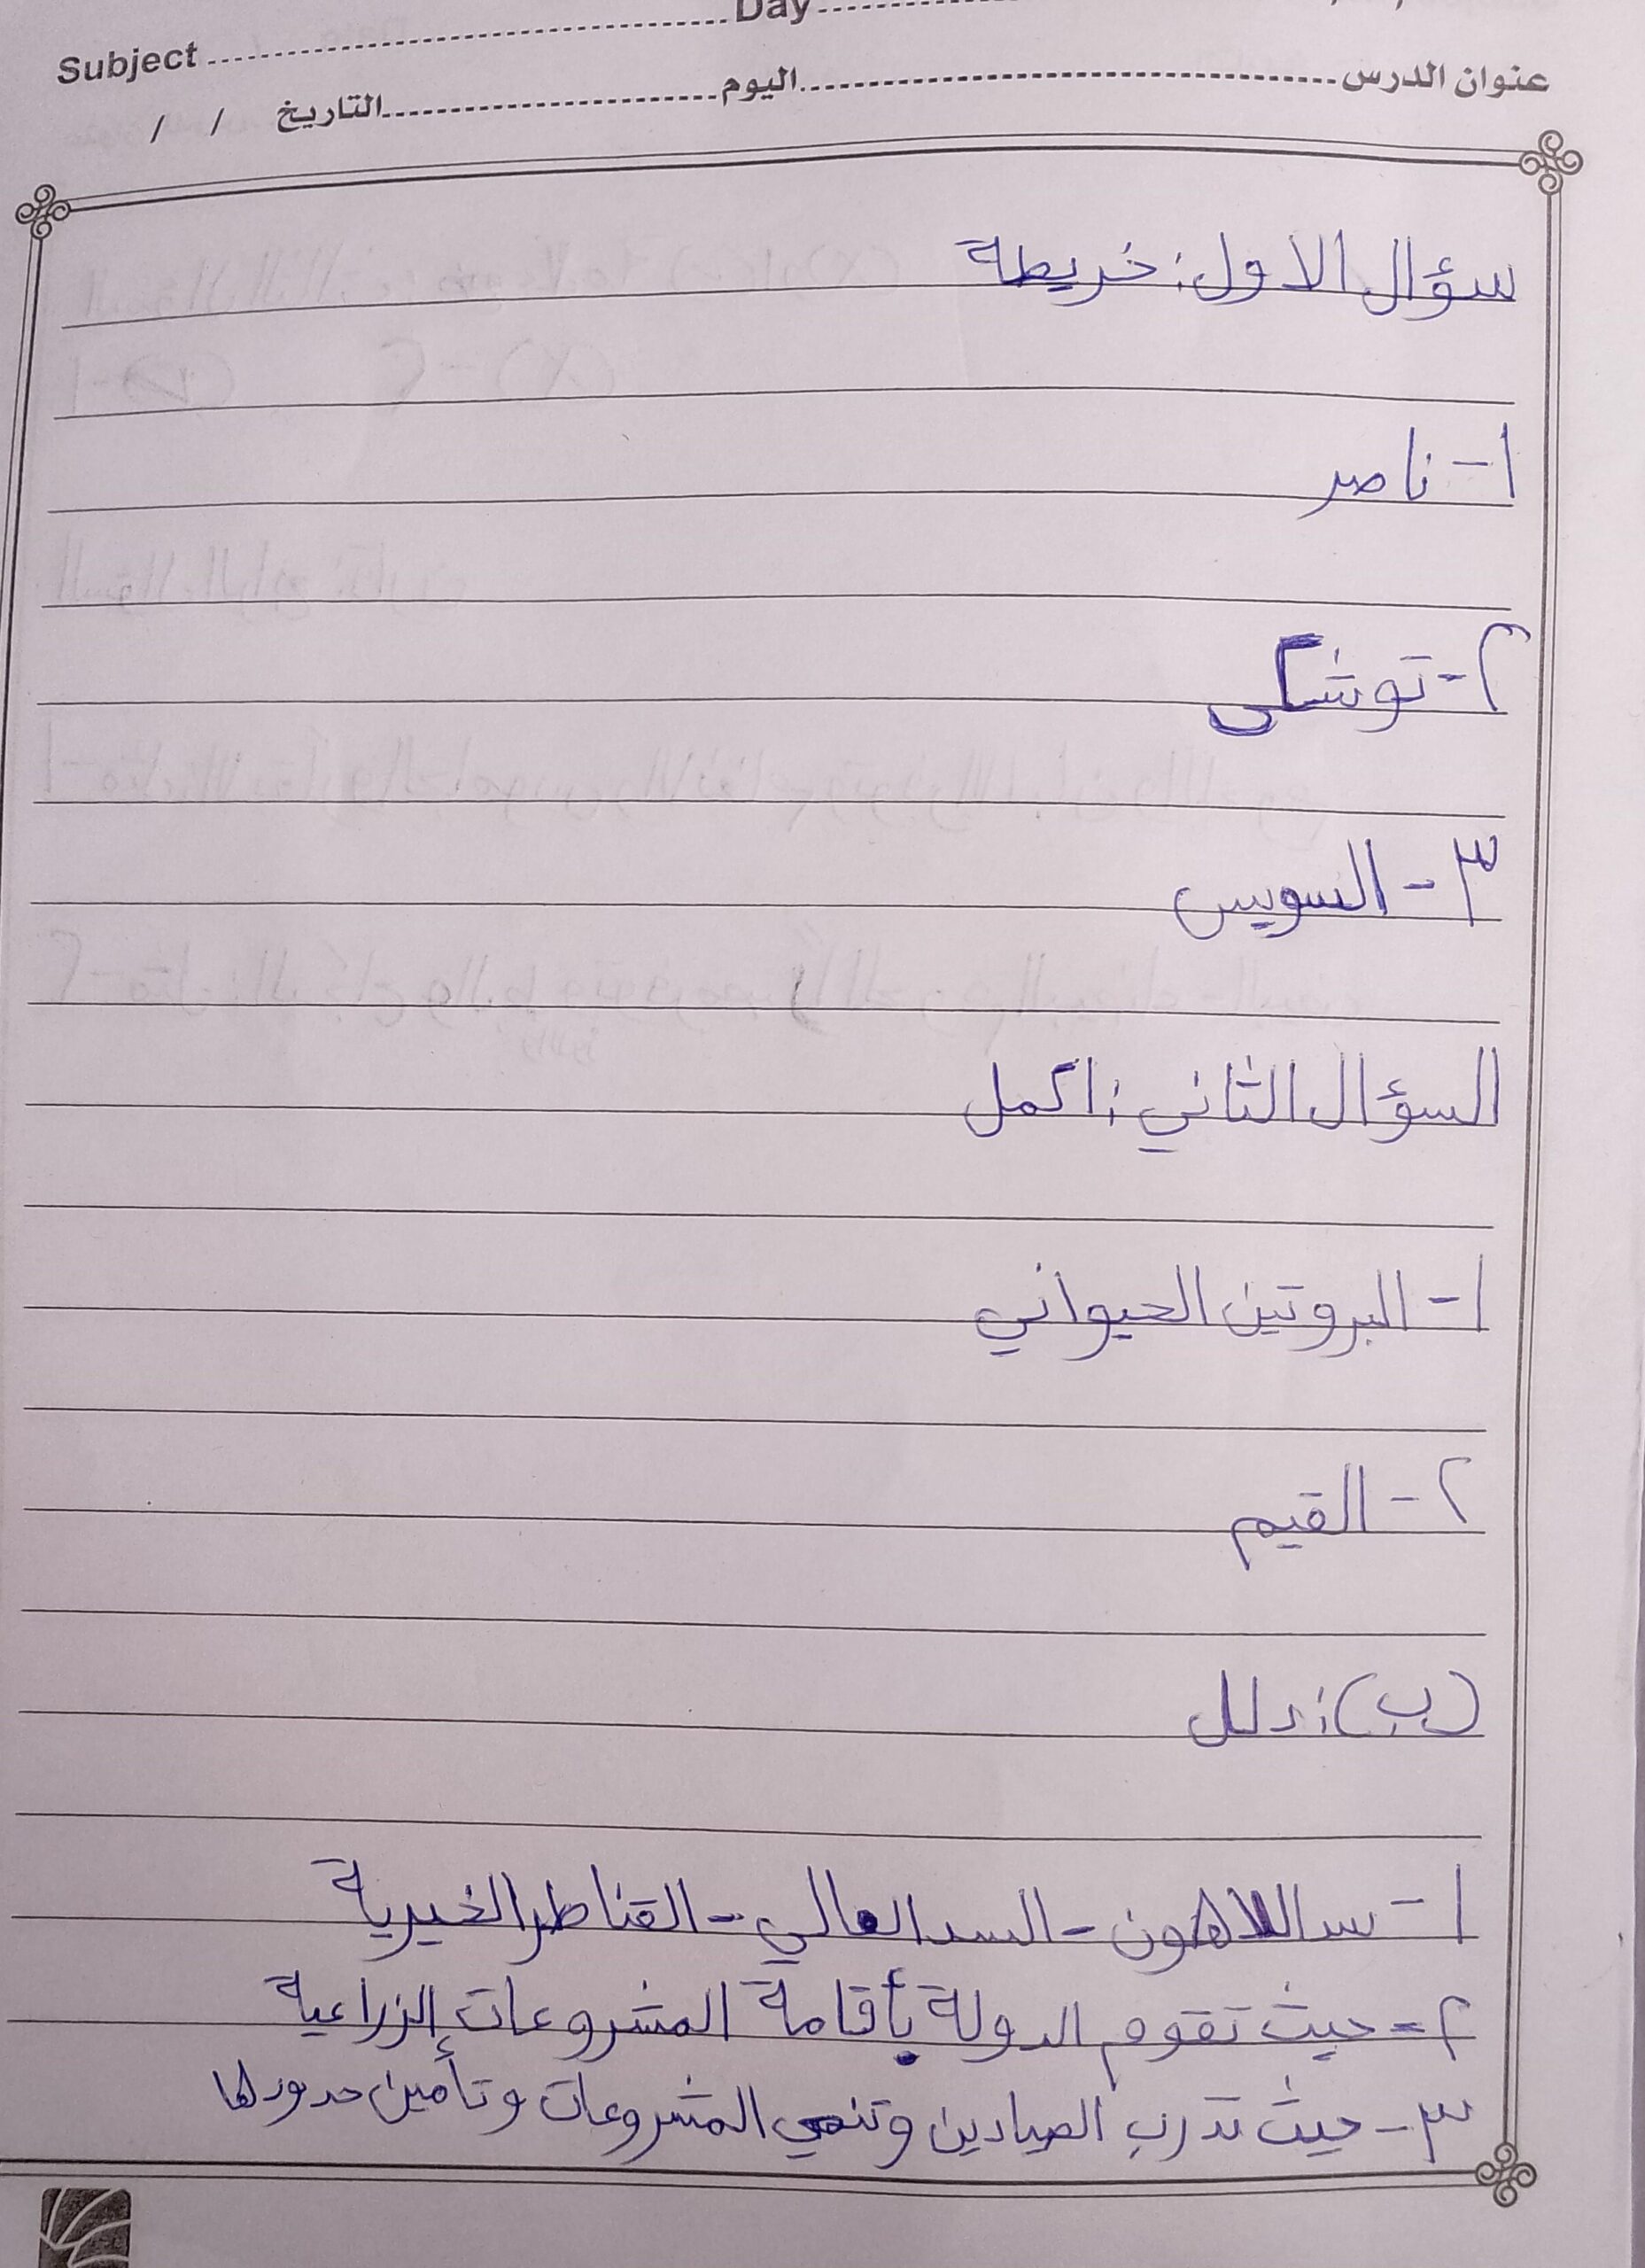 Day
Subject
عنوان الدرس اليوم التاريخ / /
سؤال الاول: خريطة
١- ناصر
٢- توشكى
٣- السويس
السؤال الثاني: اكمل
١- البروتين الحيواني
٢- القيم
(ب): دلل
١- سد اللاهون - السد العالي - القناطر الخيرية
٢- حيث تقوم الدولة بأقامة المشروعات الزراعية
٣- حيث تدرب الصيادين وتنمي المشروعات وتأمين حدودها